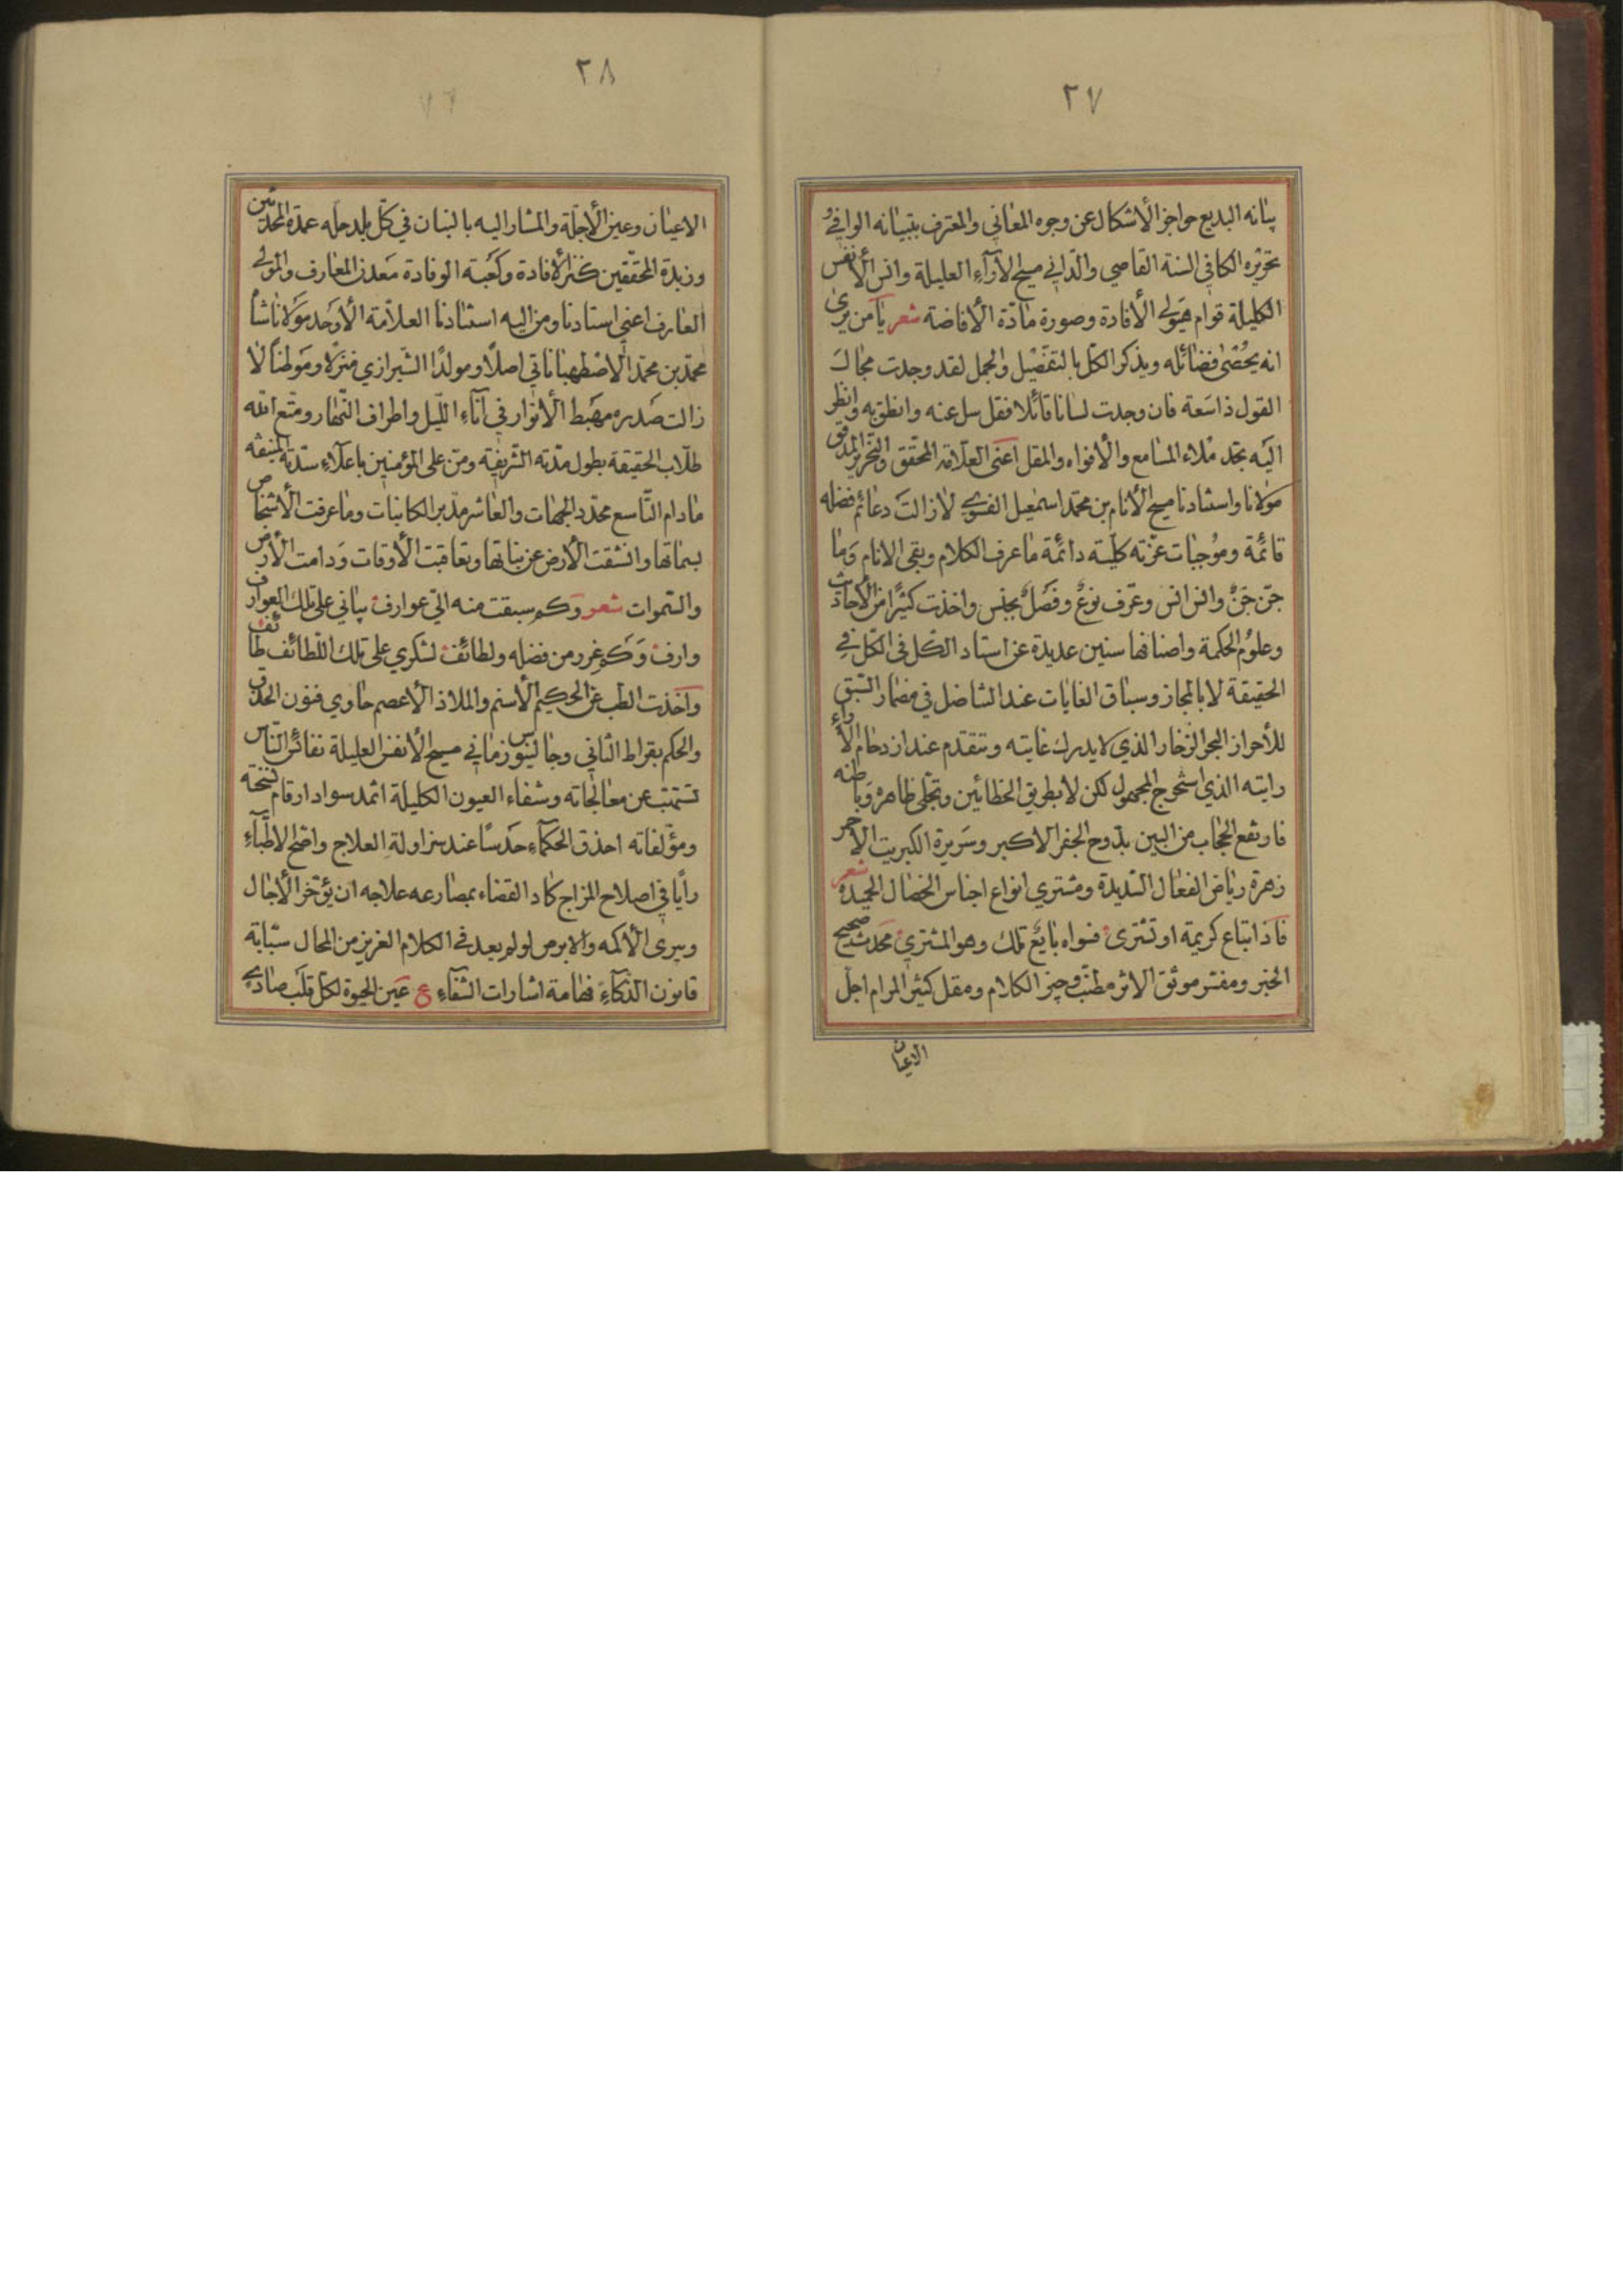 ٢٧
بيانه البديع حواجز الأشكال عن وجوه المعاني والمعترف بتبيانه الوافي و
تحريره الكافي السنة القاصي والداني مسيح الآراء العليلة وانس الأنفس
الكليلة قوام هيولى الأفادة وصورة مادة الأفاضة شعر يا من يرى
انه يحصى فضائله ويذكر الكل بالتفصيل والجمل لقد وجدت مجال
القول ذا سعة فان وجدت لسانا قائلا فقل سل عنه وانطق به وانظر
اليه تجد ملاء المسامع والأفواه والمقل اعنى العلامة المحقق والنحرير المدقق
مولانا واستادنا مسيح الأنام بن محمد اسمعيل الفسوي لا زالت دعائم فضله
قائمة وموجبات عزته كلية دائمة ما عرف الكلام وبقي الانام وما
جن جن وانس انس وعرف نوع وفصل بجنس واخذت كثيرا من الأحاديث
وعلوم الحكمة واصنافها سنين عديدة عن استاد الكل في الكل في
الحقيقة لا بالمجاز وسباق الغايات عند التناضل في مضمار السبق
للأحراز البحر الزخار الذي لا يدرك غايته وتتقدم عند ازدحام الآراء
رايته الذي استخرج المجهول لكن لا بطريق الخطائين وتجلى ظاهره وباطنه
فارتفع الحجاب من البين بدوح الجفر الاكبر وسريرة الكبريت الأحمر
زهرة رياض الفعال السديدة ومشتري انواع اجناس الخصال الحميدة شعر
فاذا ابتاع كريمة او تشترى فسواه بايع تلك وهو المشتري محدث صحيح
الخبر ومفسر موثق الاثر مطنب وجيز الكلام ومقل كثير المرام اجل
الاعيان
٢٨
الاعيان وعين الأجلة والمشار اليه بالبنان في كل بلد حله عمدة المحدثين
وزبدة المحققين كنز الأفادة وكعبة الوفادة معدن المعارف والمولى
العارف اعني استادنا ومن اليه استنادنا العلامة الأوحد مولانا شاه
محمد بن محمد الاصطهباناتي اصلا ومولدا الشيرازي منزلا وموطنا لا
زالت صدره مهبط الأنوار في آناء الليل واطراف النهار ومتع الله
طلاب الحقيقة بطول مدته الشريفة ومن على المؤمنين باعلاء سدته المنيفة
ما دام التاسع محدد الجهات والعاشر مدبر الكائنات وما عرفت الأشخاص
بسماتها وانشقت الأرض عن نباتها وتعاقبت الأوقات ودامت الأرض
والسموات شعر وكم سبقت منه الي عوارف بياني على تلك العوارف
وارف وكم غرر من فضله ولطائف لشكري على تلك اللطائف طائف
واخذت الطب عن الحكيم الأسنم والملاذ الأعصم حاوي فنون الحذق
والحكم بقراط الثاني وجالينوس زماني مسيح الأنفس العليلة نفائس الناس
تستتب عن معالجاته وشفاء العيون الكليلة اثمد سواد ارقام نسخته
ومؤلفاته احذق الحكماء حدسا عند مزاولة العلاج واضح الاطباء
رأيا في اصلاح المزاج كاد القضاء بمصارعه علاجه ان يؤخر الأجال
ويبرى الأكمه والابرص لو لم يعد في الكلام العزيز من المحال سبابة
قانون الذكاء فهامة اشارات الشفاء ع عين الحيوة لكل قلب صادي